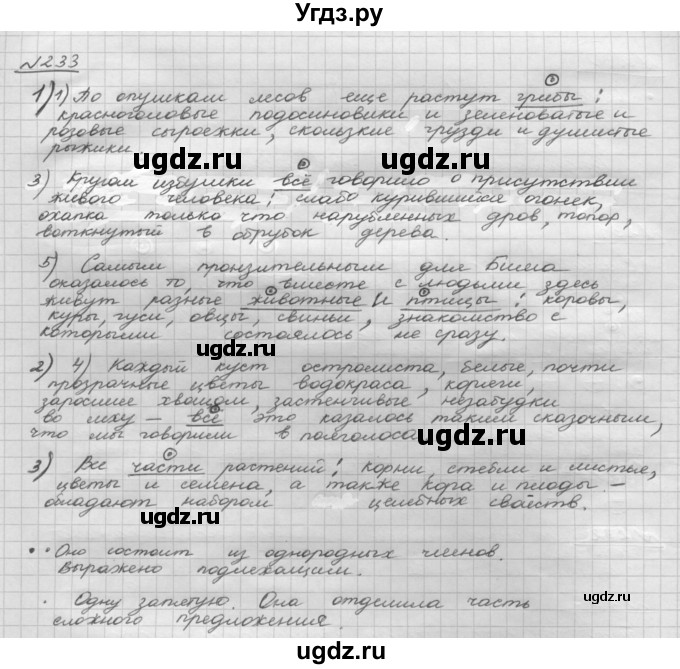 Угдз.ру
№233
1) 1) По опушкам лесов еще растут грибы:
красноголовые подосиновики и зеленоватые и
розовые сыроежки, скользкие грузди и душистые
рыжики.
ugdz.ru ugdz.ru
3) Кругом избушки всё говорило о присутствии
живого человека: слабо курившийся огонек,
охапка только что нарубленных дров, топор,
воткнутый в обрубок дерева.
5) Самым пронзительным для Бима
оказалось то, что вместе с людьми здесь
живут разные животные и птицы: коровы,
куры, гуси, овцы, свиньи, знакомство с
которыми состоялось не сразу.
ugdz.ru ugdz.ru
2) 4) Каждый куст остролиста, белые, почти
прозрачные цветы водокраса, коряги,
заросшие хвощом, застенчивые незабудки
во мху – всё это казалось таким сказочным,
что мы говорили в полголоса
ugdz.ru
3) Все части растений: корни, стебли и листья,
цветы и семена, а также кора и плоды –
обладают набором целебных свойств.
ugdz.ru
Оно состоит из однородных членов.
Выражено подлежащим.
ugdz.ru
Одну запятую. Она отделила часть
сложного предложения.
ugdz.ru